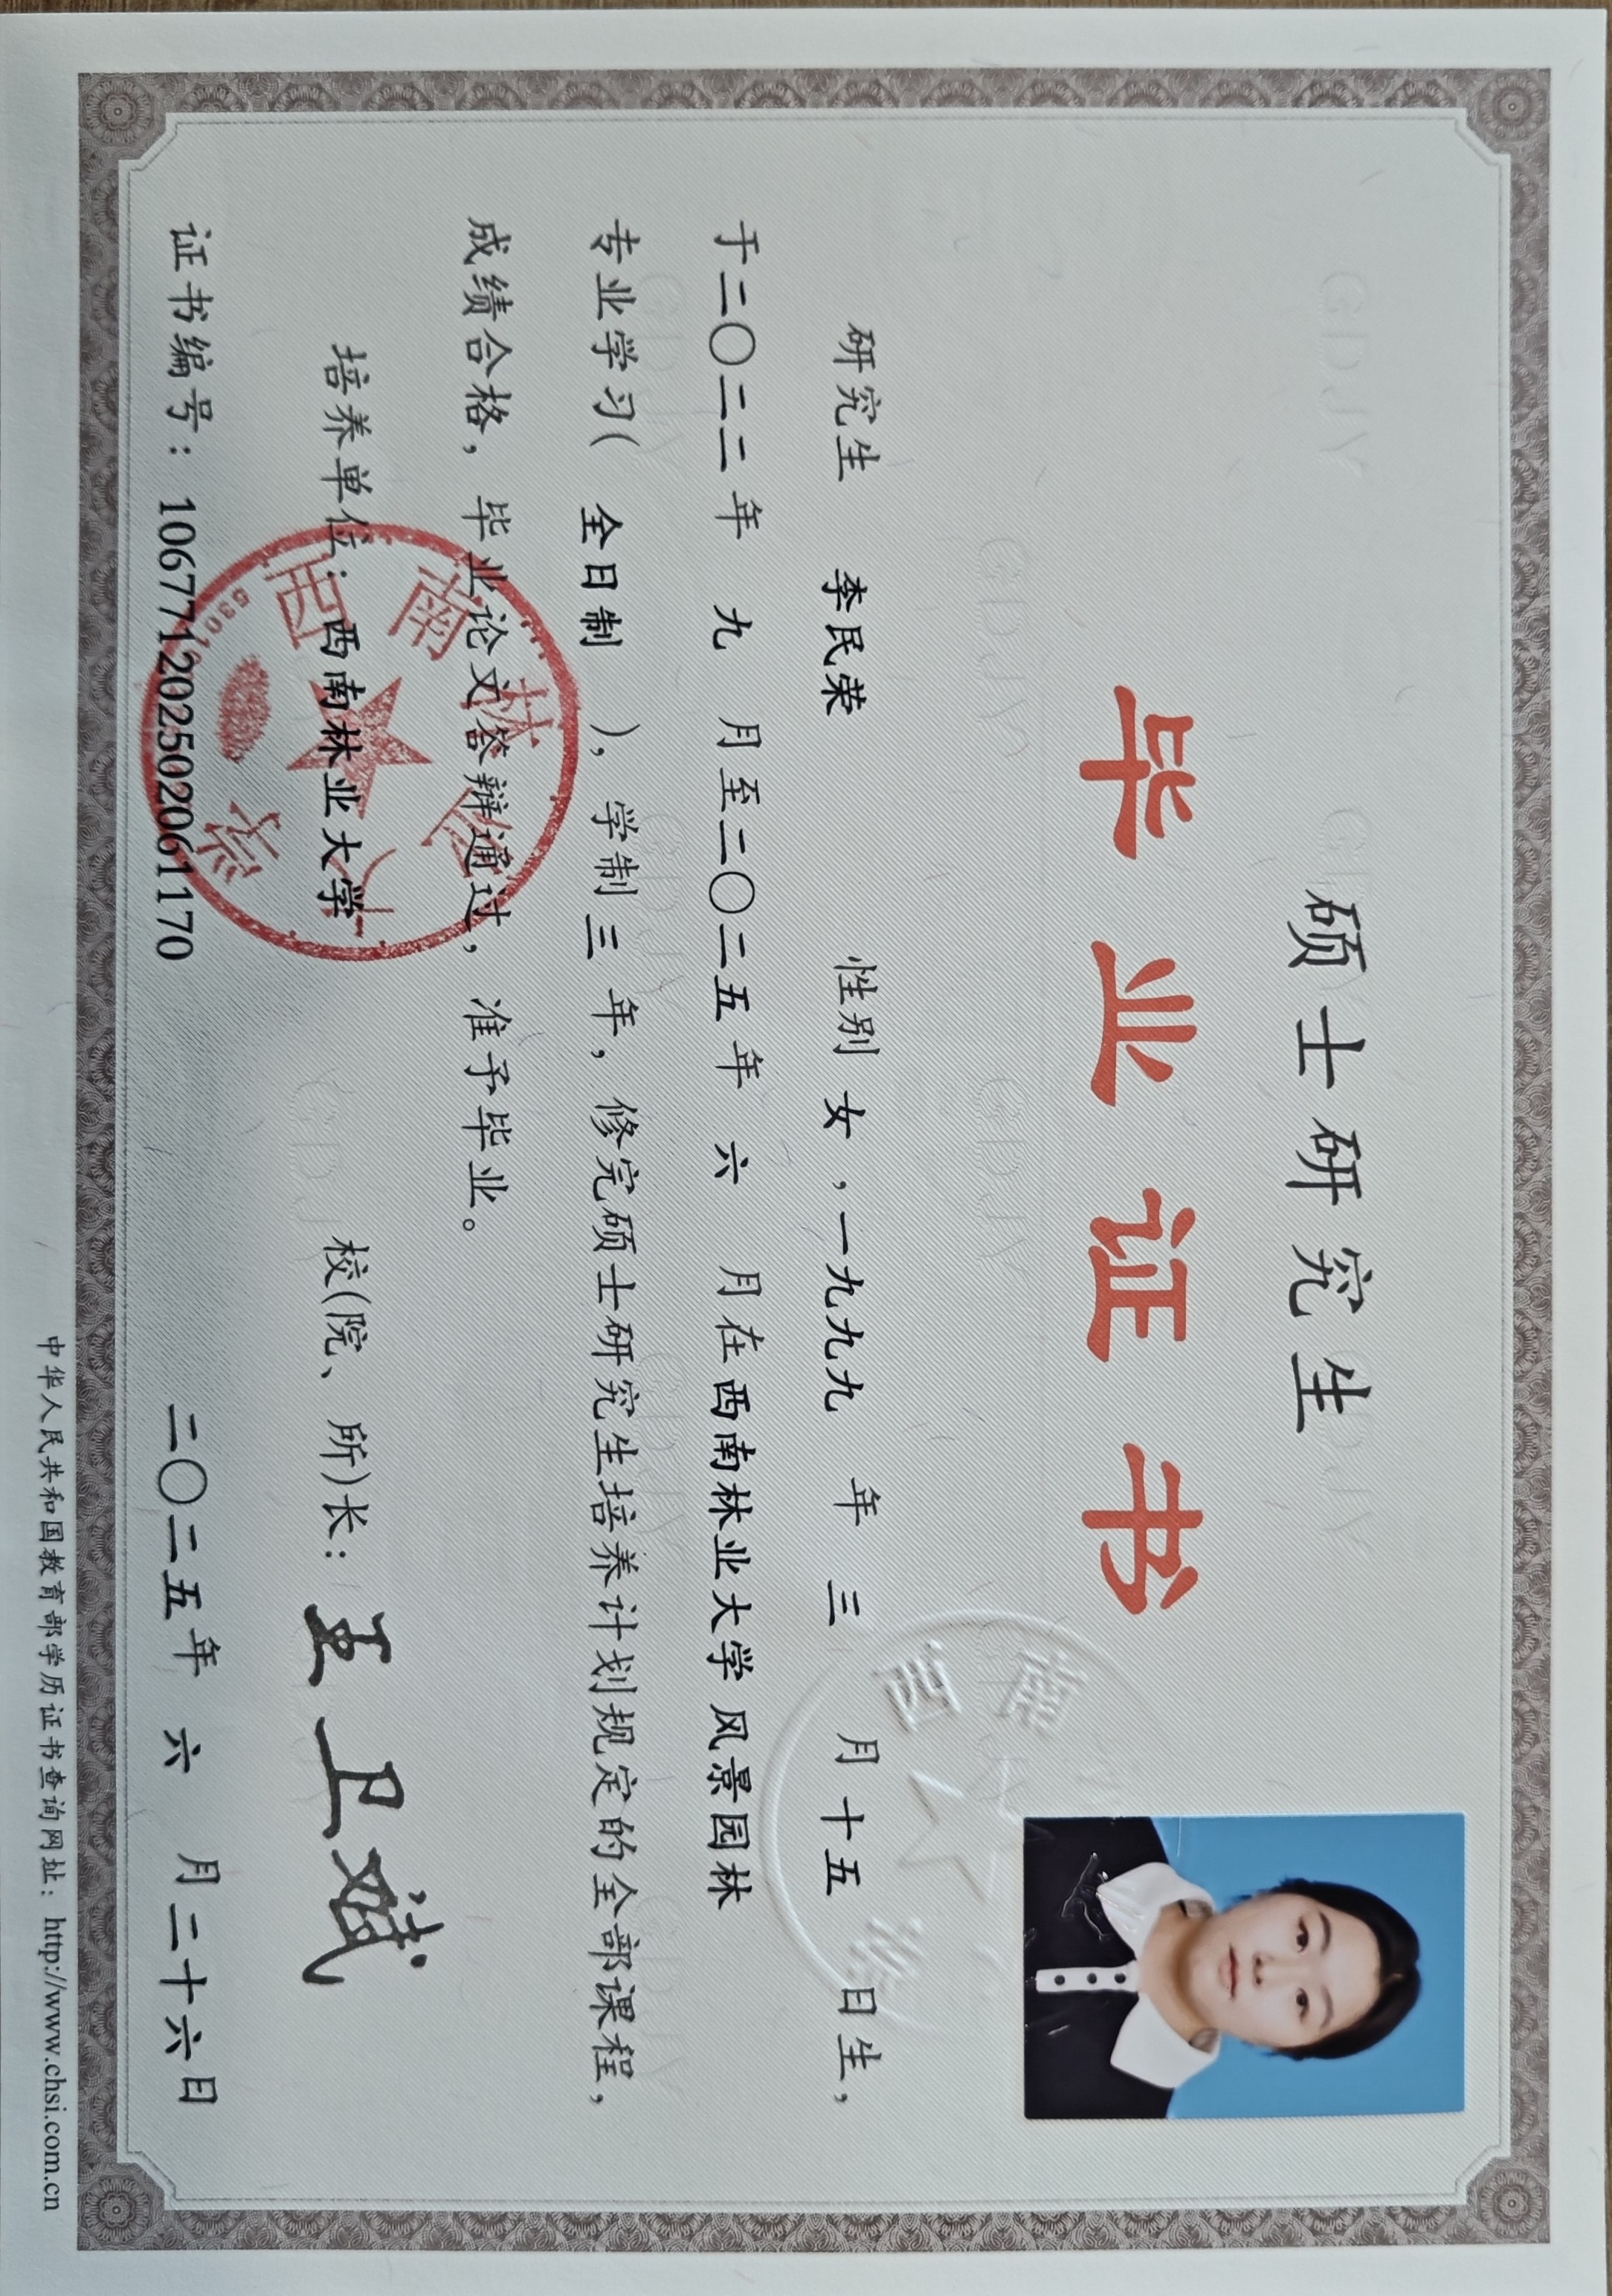 硕士研究生
毕业证书
研究生 李民荣 性别 女，一九九九 年 三 月 十五 日生，
于二〇二二 年 九 月至二〇二五 年 六 月在西南林业大学 风景园林
专业学习( 全日制 )，学制 三 年，修完硕士研究生培养计划规定的全部课程，
成绩合格，毕业论文答辩通过，准予毕业。
培养单位：西南林业大学 校(院、所)长：王卫斌
证书编号：106771202502061170 二〇二五 年 六 月 二十六日
中华人民共和国教育部学历证书查询网址：http://www.chsi.com.cn